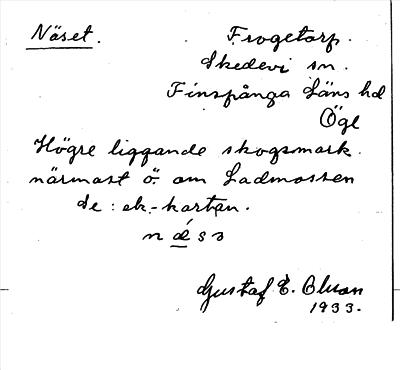 Näset. Frogetorp.
Skedevi sn.
Finspånga Läns hd
Ögl
Högre liggande skogsmark
närmast ö. om Ladmossen
Se: ek.-kartan.
næ̀ss
Gustaf E. Olson
1933.